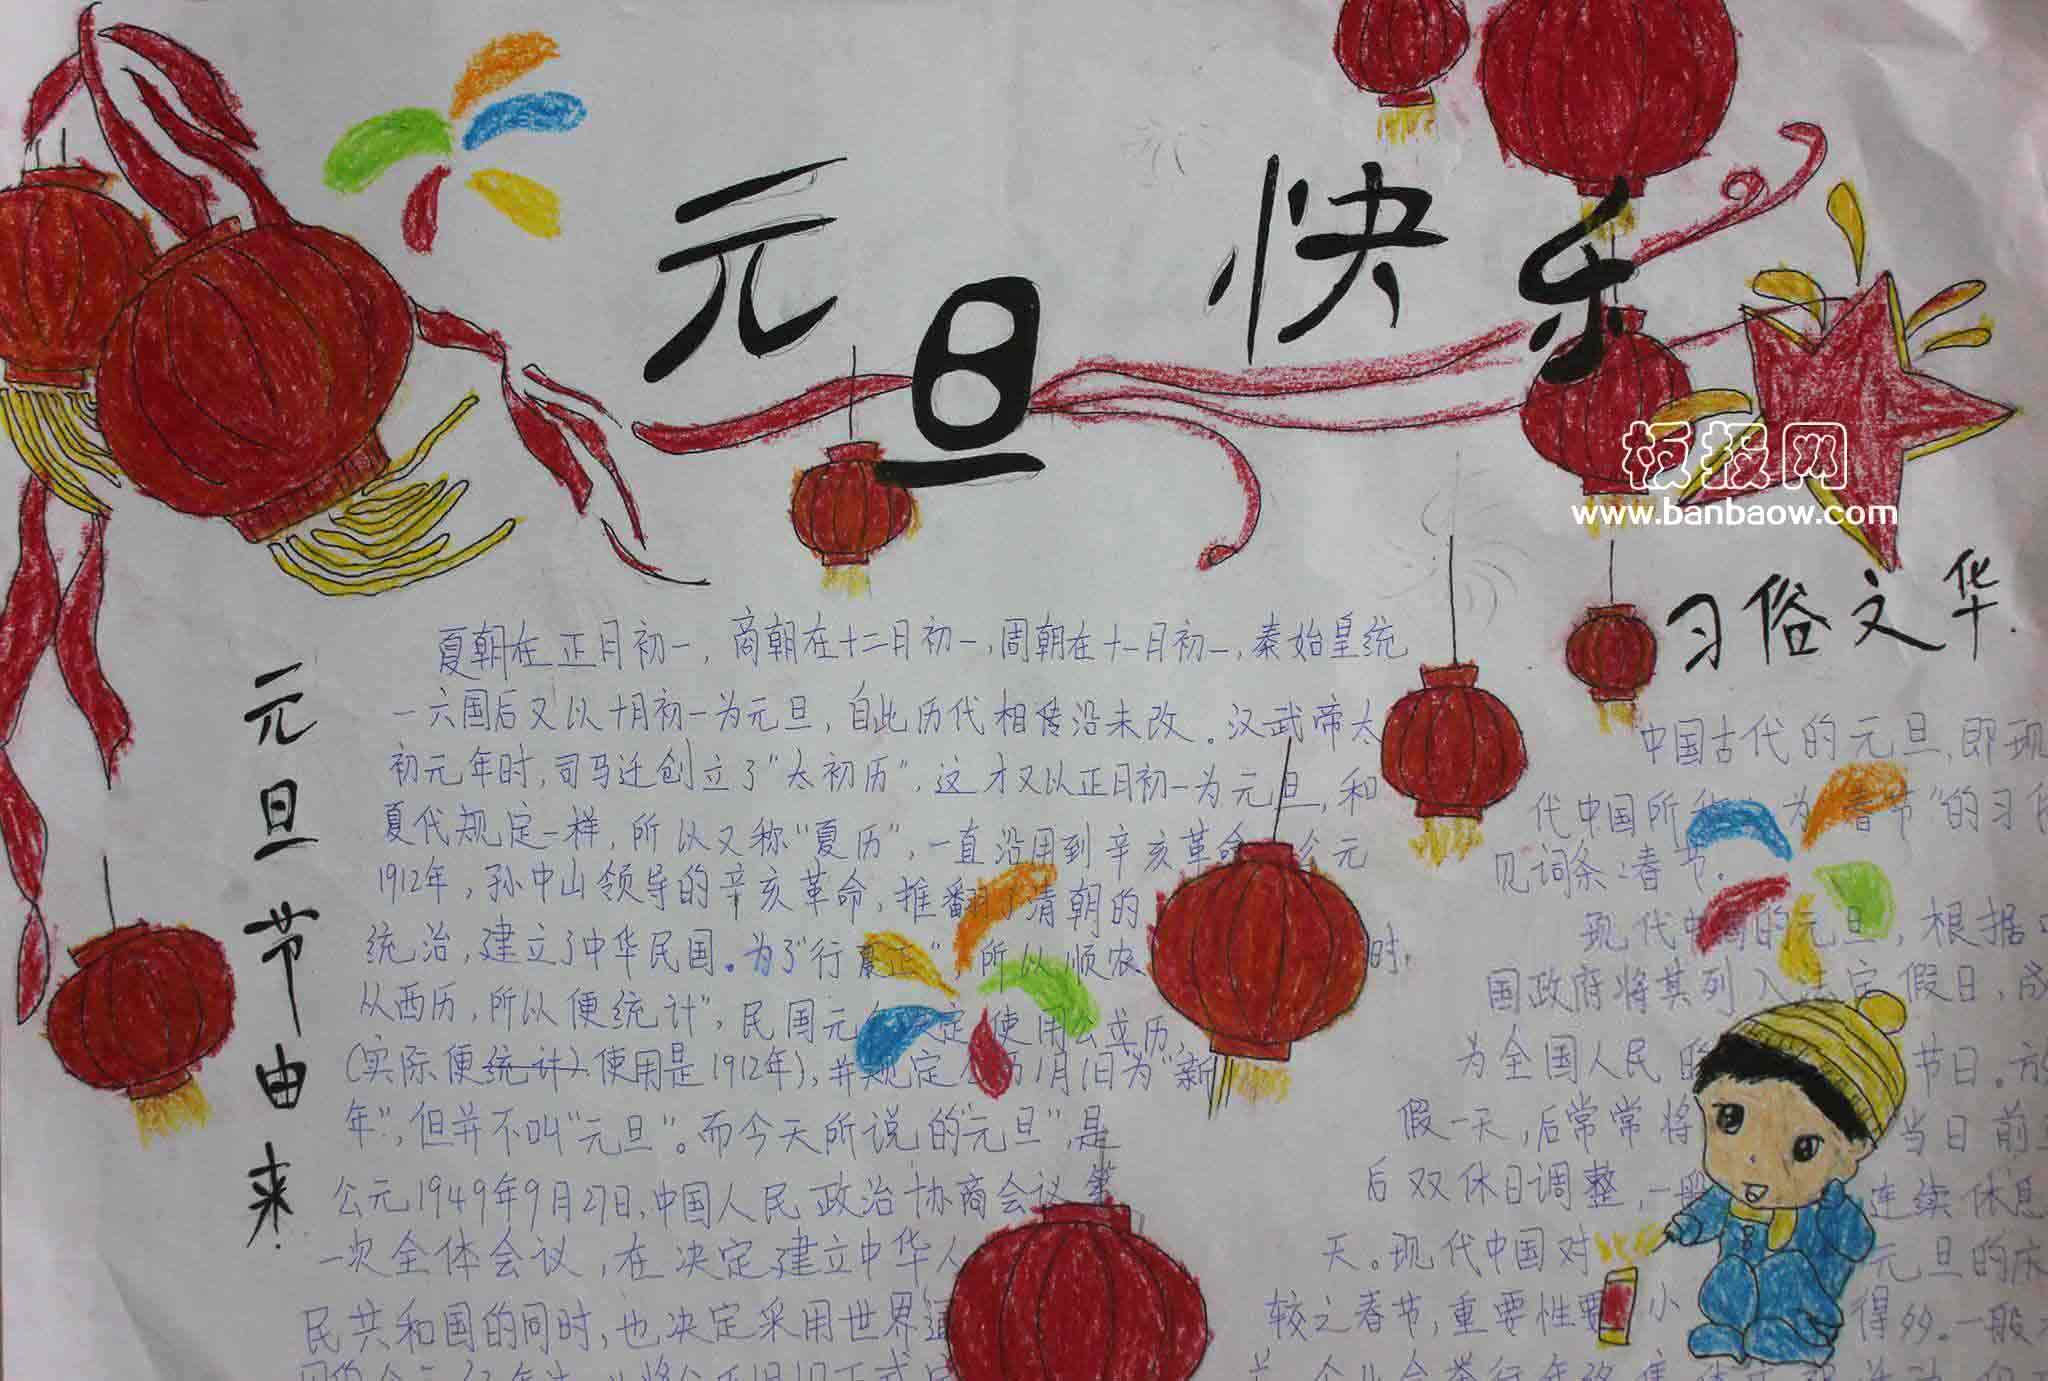 元旦快乐
板报网
www.banbaow.com
元旦节由来
夏朝在正月初一，商朝在十二月初一，周朝在十一月初一，秦始皇统
一六国后又以十月初一为元旦，自此历代相传沿未改。汉武帝太
初元年时，司马迁创立了"太初历"，这才又以正月初一为元旦，和
夏代规定一样，所以又称"夏历"，一直沿用到辛亥革命。公元
1912年，孙中山领导的辛亥革命，推翻了清朝的
统治，建立了中华民国。为了"行夏正"，所以顺农 时，
从西历，所以便统计"，民国元年决定使用公或历，
(实际便统计)使用是1912年)，并规定公历1月1日为"新
年"，但并不叫"元旦"。而今天所说的"元旦"，是
公元1949年9月27日，中国人民政治协商会议第
一次全体会议，在决定建立中华人
民共和国的同时，也决定采用世界通
习俗文华
中国古代的元旦，即现
代中国所 为"春节"的习俗
见词条：春节。
现代中国的元旦，根据中
国政府将其列入法定假日，成
为全国人民的 节日。放
假一天，后常常将 当日前
后双休日调整，一般 连续休息
天。现代中国对 元旦的庆
较之春节，重要性要小 得多。一般